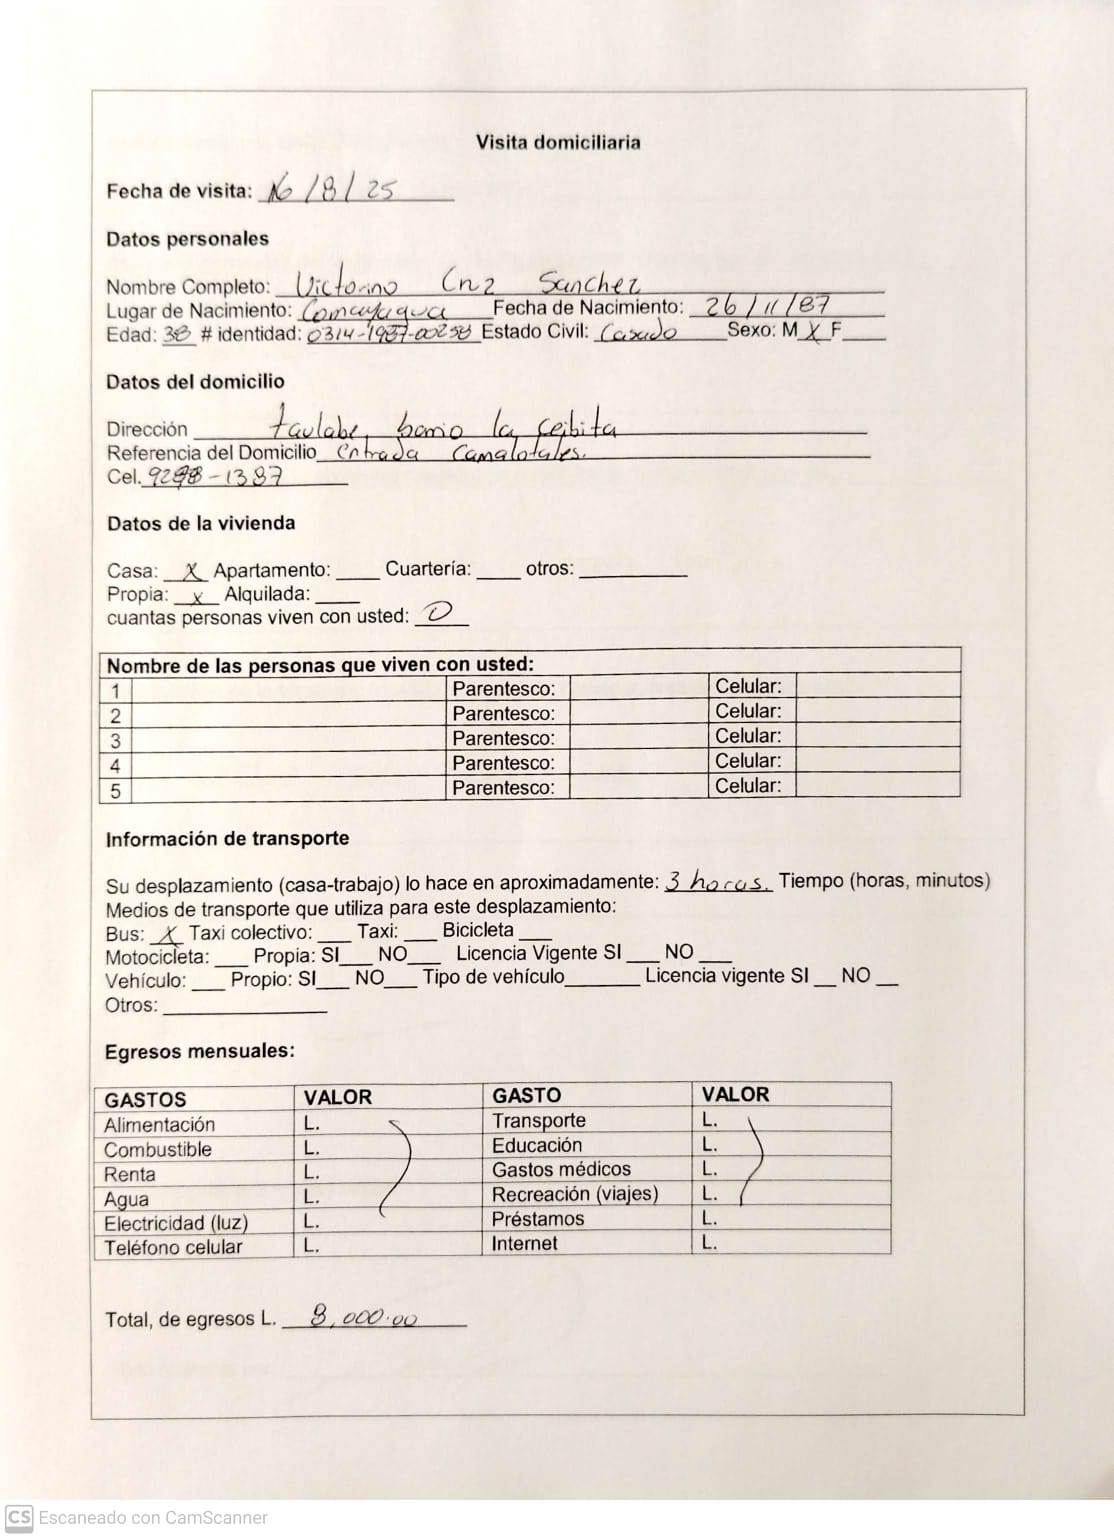 Visita domiciliaria
Fecha de visita: 16/8/25
Datos personales
Nombre Completo: Victorino Cruz Sanchez
Lugar de Nacimiento: Comayagua Fecha de Nacimiento: 26/11/87
Edad: 38 # identidad: 0314-1987-00258 Estado Civil: Casado Sexo: M X F
Datos del domicilio
Dirección taulabe, barrio la ceibita
Referencia del Domicilio entrada Camalotales.
Cel. 9298-1387
Datos de la vivienda
Casa: X Apartamento: ____ Cuartería: ____ otros: ____
Propia: x Alquilada: ____
cuantas personas viven con usted: 0
Nombre de las personas que viven con usted:
1 Parentesco: Celular:
2 Parentesco: Celular:
3 Parentesco: Celular:
4 Parentesco: Celular:
5 Parentesco: Celular:
Información de transporte
Su desplazamiento (casa-trabajo) lo hace en aproximadamente: 3 horas. Tiempo (horas, minutos)
Medios de transporte que utiliza para este desplazamiento:
Bus: X Taxi colectivo: ___ Taxi: ___ Bicicleta ___
Motocicleta: ___ Propia: SI___ NO___ Licencia Vigente SI ___ NO ___
Vehículo: ___ Propio: SI___ NO___ Tipo de vehículo_______ Licencia vigente SI __ NO __
Otros: _______________
Egresos mensuales:
GASTOS VALOR GASTO VALOR
Alimentación L. Transporte L.
Combustible L. Educación L.
Renta L. Gastos médicos L.
Agua L. Recreación (viajes) L.
Electricidad (luz) L. Préstamos L.
Teléfono celular L. Internet L.
Total, de egresos L. 8,000.00
CS Escaneado con CamScanner